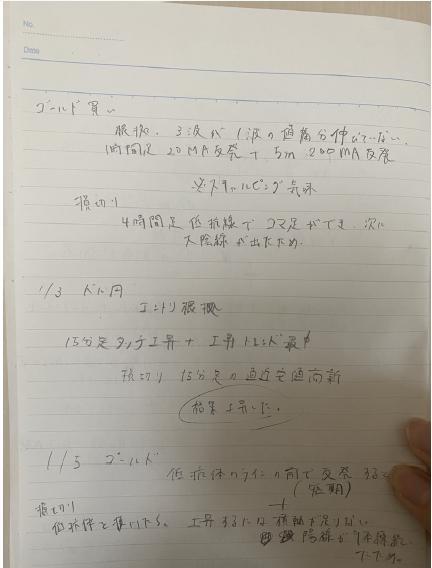 No.
Date
ゴールド買い
根拠、3波が1波の値幅分伸びていない、
1時間足 20MA反発 + 5m 200MA反発
※スキャルピング気味
損切り
4時間足 低抗線で コマ足ができ、次に
大陰線が出たため
1/3 ドル円
エントリ根拠
15分足 上昇 + 上昇トレンド
損切り 15分足の直近安値
結果上昇した。
1/5 ゴールド
低抗体のラインの前で反発すると
(短期)
損切り
低抗体と 上昇するには 足りない
陽線が
ため。